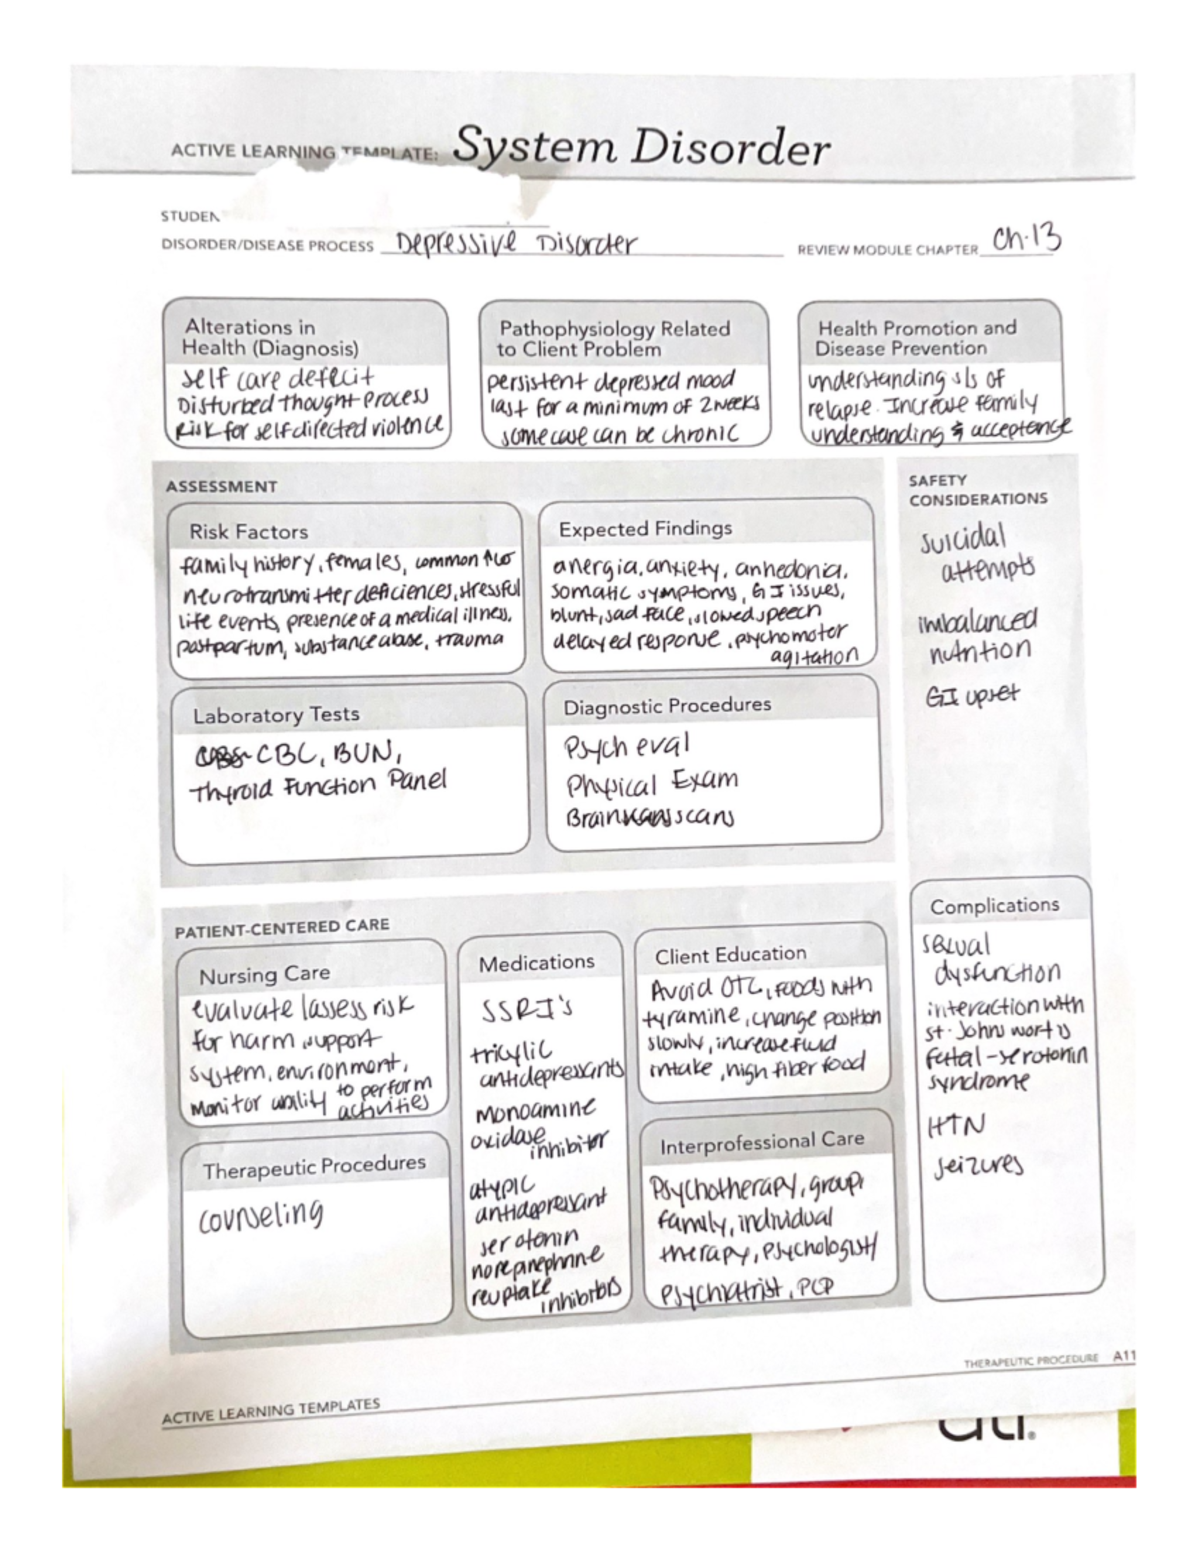 ACTIVE LEARNING TEMPLATE: System Disorder
STUDEN
DISORDER/DISEASE PROCESS Depressive Disorder
REVIEW MODULE CHAPTER Ch.13
Alterations in
Health (Diagnosis)
self care defecit
Disturbed thought process
Risk for self directed violence
Pathophysiology Related
to Client Problem
persistent depressed mood
last for a minimum of 2 weeks
some case can be chronic
Health Promotion and
Disease Prevention
understanding s/s of
relapse. Increase family
understanding & acceptance
ASSESSMENT
Risk Factors
family history, females, common ↑60
neurotransmitter deficiences, stressful
life events, presence of a medical illness,
postpartum, substance abuse, trauma
Expected Findings
anergia, anxiety, anhedonia,
somatic symptoms, GI issues,
blunt, sad face, slowed speech
delayed response, psychomotor
agitation
SAFETY
CONSIDERATIONS
suicidal
attempts
imbalanced
nutrition
GI upset
Laboratory Tests
CBC, BUN,
Thyroid Function Panel
Diagnostic Procedures
Psych eval
Physical Exam
Brain scans
PATIENT-CENTERED CARE
Nursing Care
evaluate/assess risk
for harm, support
system, environment,
Monitor ability to perform
activities
Medications
SSRI's
tricylic
antidepressants
monoamine
oxidase
inhibitor
atypic
antidepressant
serotonin
norepinephrine
reuptake
inhibitors
Client Education
Avoid OTC, foods with
tyramine, change position
slowly, increase fluid
intake, high fiber food
Complications
sexual
dysfunction
interaction with
st. Johns wort is
fettal-serotonin
syndrome
HTN
seizures
Therapeutic Procedures
counseling
Interprofessional Care
Psychotherapy, group,
family, individual
therapy, psychologist/
psychiatrist, PCP
THERAPEUTIC PROCEDURE A11
ACTIVE LEARNING TEMPLATES